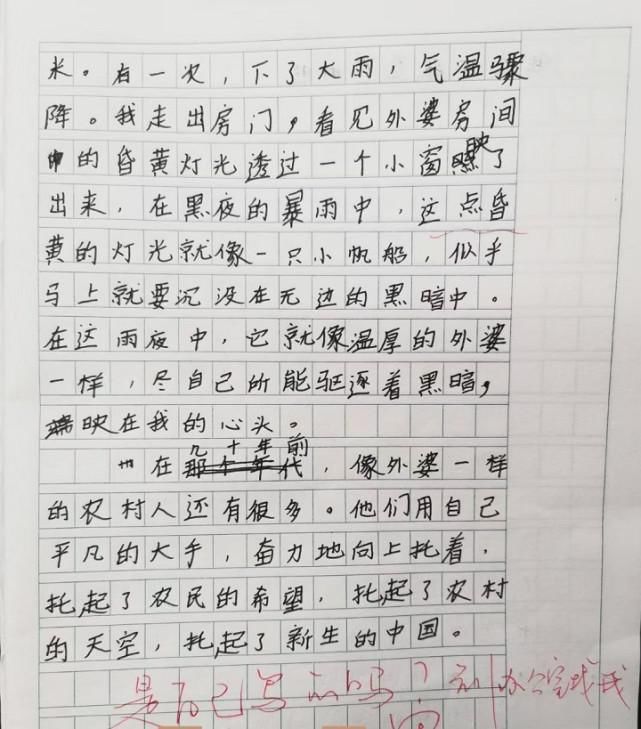 米。有一次，下了大雨，气温骤
降。我走出房门，看见外婆房间
中的昏黄灯光透过一个小窗映了
出来，在黑夜的暴雨中，这点昏
黄的灯光就像一只小帆船，似乎
马上就要沉没在无边的黑暗中。
在这雨夜中，它就像温厚的外婆
一样，尽自己所能驱逐着黑暗，
映在我的心头。
几十年前
在那个年代，像外婆一样
的农村人还有很多。他们用自己
平凡的大手，奋力地向上托着，
托起了农民的希望，托起了农村
的天空，托起了新生的中国。
是自己写的吗？到办公室找我